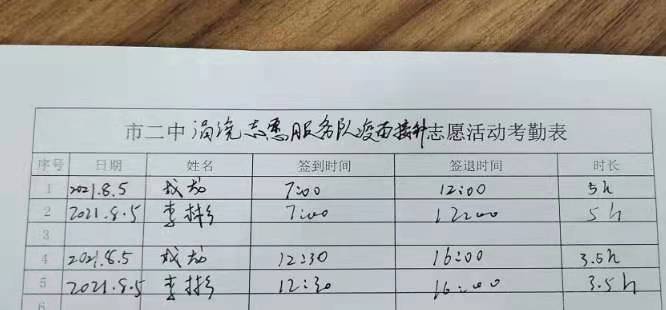 市二中 涡浇志愿服务队疫苗接种志愿活动考勤表
序号 日期 姓名 签到时间 签退时间 时长
1 2021.8.5 7:00 12:00 5h
2 2021.8.5 李彬 7:00 12:00 5h
3
4 2021.8.5 12:30 16:00 3.5h
5 2021.8.5 李彬 12:30 16:00 3.5h
6